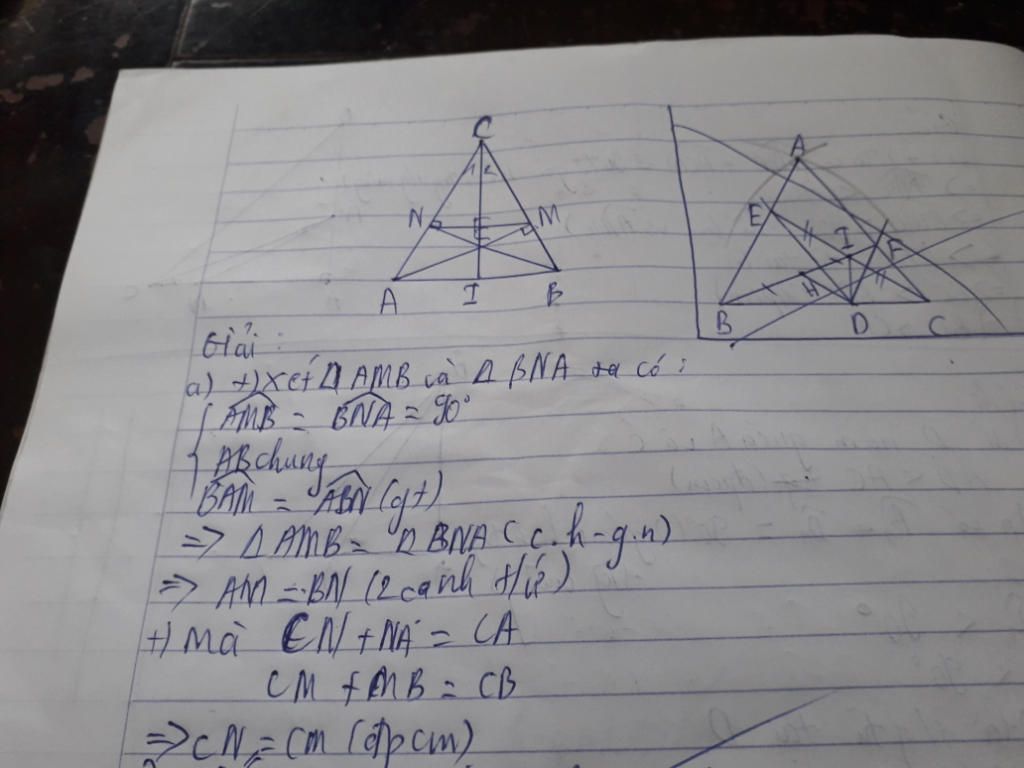 C
1 2
N E M
A I B
A
E I F
H
B D C
Giải :
a) +) Xét Δ AMB và Δ BNA ta có :
AMB = BNA = 90°
AB chung
BAM = ABN (gt)
=> Δ AMB = Δ BNA (c.h-g.n)
=> AM = BN (2 cạnh t/ứ)
+) Mà CN + NA = CA
CM + MB = CB
=> CN = CM (đpcm)